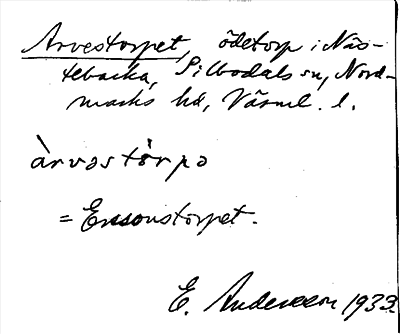 Arvestorpet, ödetorp i Näs-
tebacka, Silbodals sn, Nord-
marks hd, Värml. l.
àrvastòrpa
= Ersonstorpet.
E. Andersson 1933.